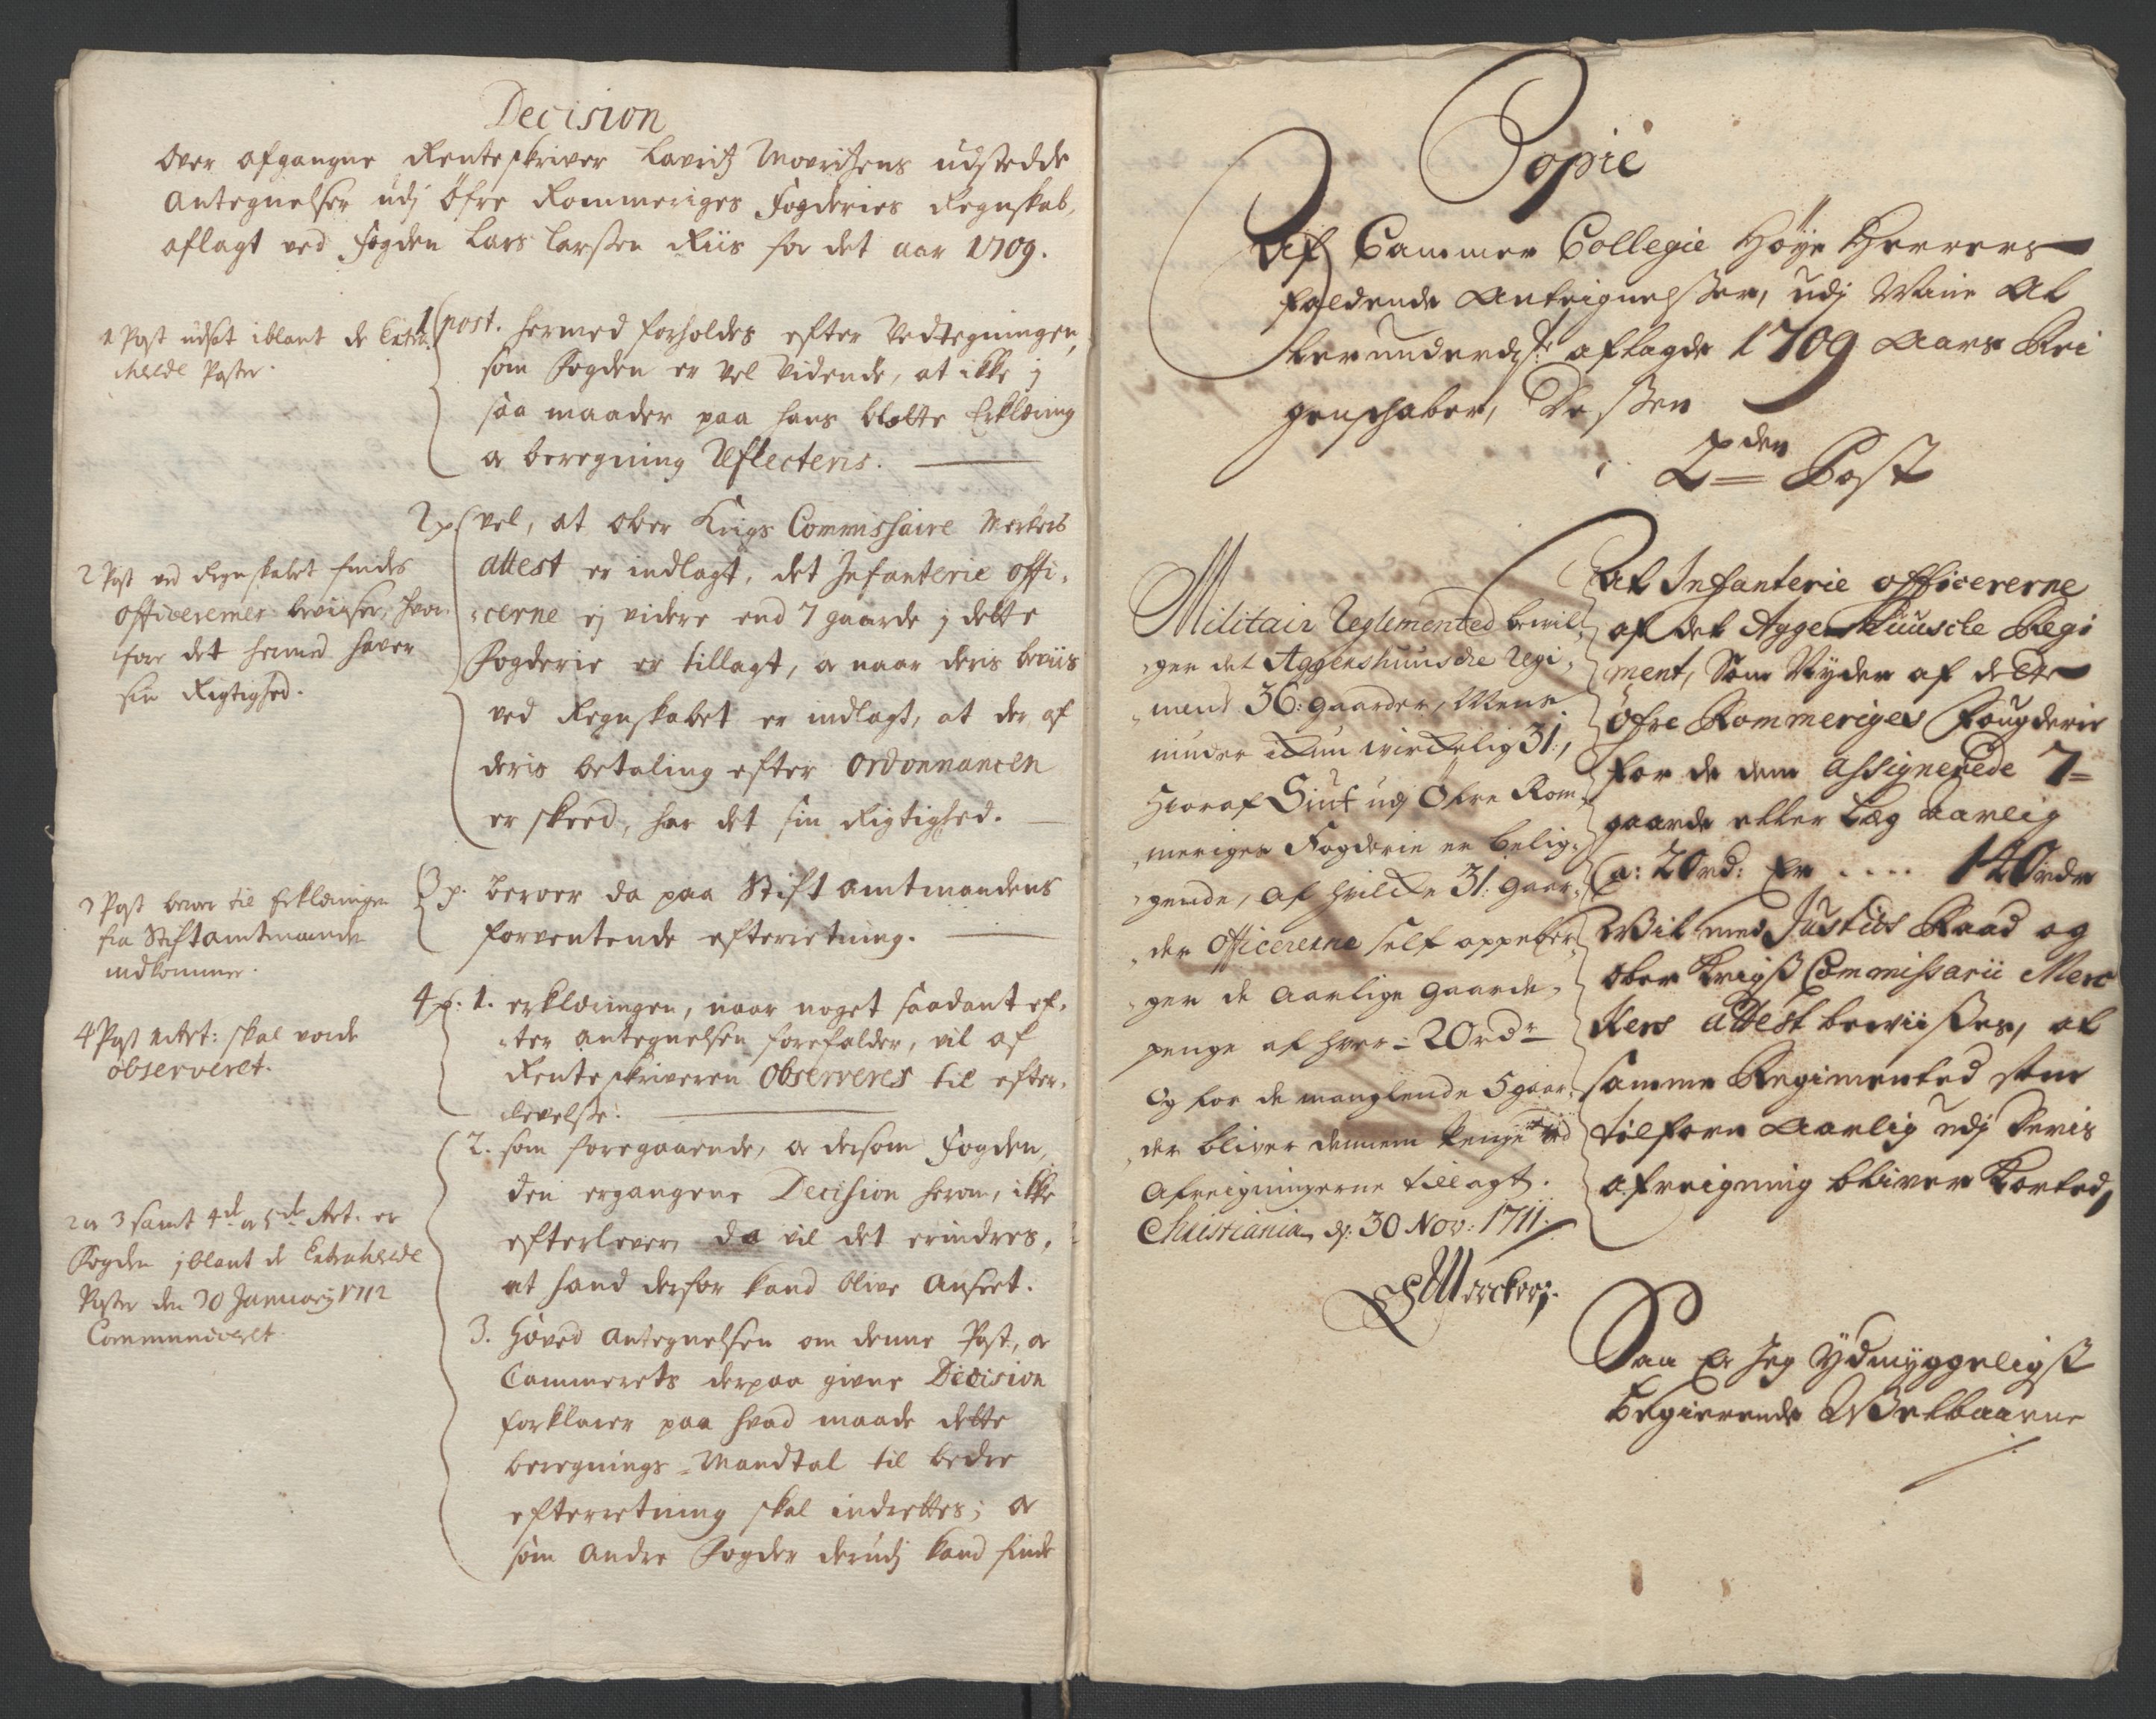 Decision
Over afgangne Renteskriver Lavritz Movritzens udstedde
Antegnelser udj Öfre Rommeriges Fogderies Regnskab,
aflagt ved Fogden Lars Larssen Riis for det aar 1709.
1 Post udsat iblant de Extra-
herede Poster.
1 post. hermed forholdes efter Vedtegningen,
som Fogden er vel vidende, at ikke j
saa maader paa hans blotte Erklæring
og beregning Reflecteris.
2 Post ved Regnskabet findes
officerernes beviiser, hvor-
fore det hermed haver
sin Rigtighed.
2 p. vel, at Ober Krigs Commissaire Merkers
attest er indlagt, det Infanterie offi-
cerne ej videre end 7 gaarde j dette
Fogderie er tillagt, og naar deris beviis
ved Regnskabet er indlagt, at der af
deris betaling efter Ordonnancen
er skeed, har det sin Rigtighed.
3 Post beroer til Erklæringen
fra Stiftamtmanden
indkommer.
3 p. beroer da paa Stiftamtmandens
forventende efterretning.
4 Post 1 Art: skal vorde
observeret.
4 p: 1. erklæringen, naar noget saadant ef-
ter antegnelsen forefalder, vil af
Renteskriveren Observeres til efter-
levelse.
2 og 3 samt 4de og 5te Art. er
Fogden iblant de Extraherede
Poster den 30 January 1712
Communiceret.
2. som foregaaende, og dersom Fogden,
den ergangene Decision herom, ikke
efterlever, da vil det erindres,
at hand derfor kand blive anseet.
3. Hoved Antegnelsen om denne Post, og
Cammerets derpaa givne Decision
forklarer paa hvad maade dette
beregnings-Mandtal til bedre
efterretning skal indrettes; og
som andre Fogder derudj kand finde
Copie
Af Cammer Collegie Höye Herrers
faldende Anteignelsser, udj Mine Al
lerunderdst: aflagde 1709 Aars Rei
genschaber, Dessen
2den Post
Militair Reglemented bevil-
ger det Aggershuusche Regi-
ment 36: gaarder, Mens
niuder ickun wirckelig 31:,
Hvoraf Siuf udj Öfre Rom-
meriges Fogderie er belig-
gende, Af hvilcke 31: gaar-
der Officererne self oppeber-
ger de Aarlige gaarde-
penge af hver = 20 rdr
Og for de manglende 5 gaar-
der bliver dennem Penge ved
Afreigningerne tillagt.
Christiania, d: 30 Nov: 1711.
Mercker
At Infanterie officererne
af det Aggershuusche Regi
ment, Som Nyder af dette
Öfre Rommeriges Fougderie
for de dem Assignerede 7=
gaarde eller Læg Aarlig
a: 20 rd: Er .... 140 rdr
Wil med Justits Raad og
ober Krigs Commissarii Merc
kers attest bewiisses, at
samme Regimented som
tilforn Aarlig udj deris
afreigning bliver korted,
Saa Er Jeg Ydmyggeligst
begierende Welbaarne